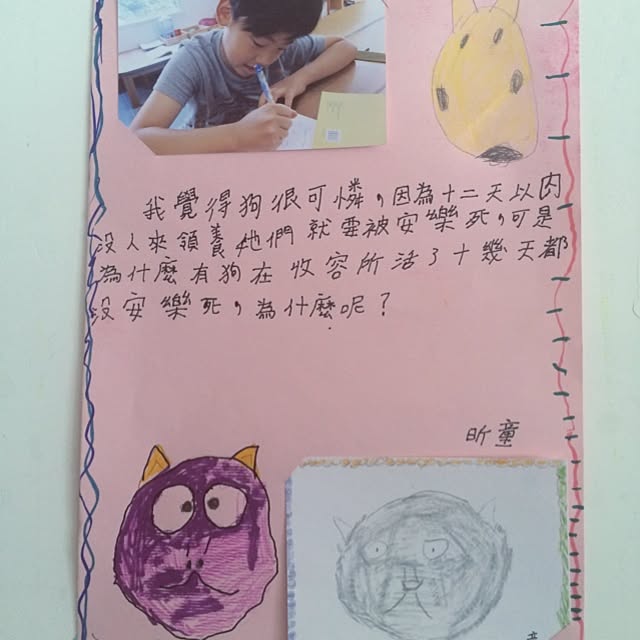 我覺得狗很可憐，因為十二天以內
沒人來領養牠們就要被安樂死，可是
為什麼有狗在收容所活了十幾天都
沒安樂死，為什麼呢？
昕童